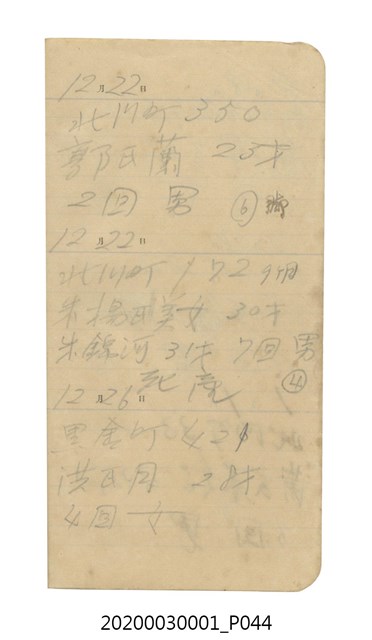 12月22日
北川町350
郭氏蘭 23才
2回 男 ⑥號
12月22日
北川町172 9ヶ月
朱楊氏美女 30才
朱錦河 31才 7回 男
死產 ④
12月26日
黑金町421
洪氏月 28才
4回 女
20200030001_P044